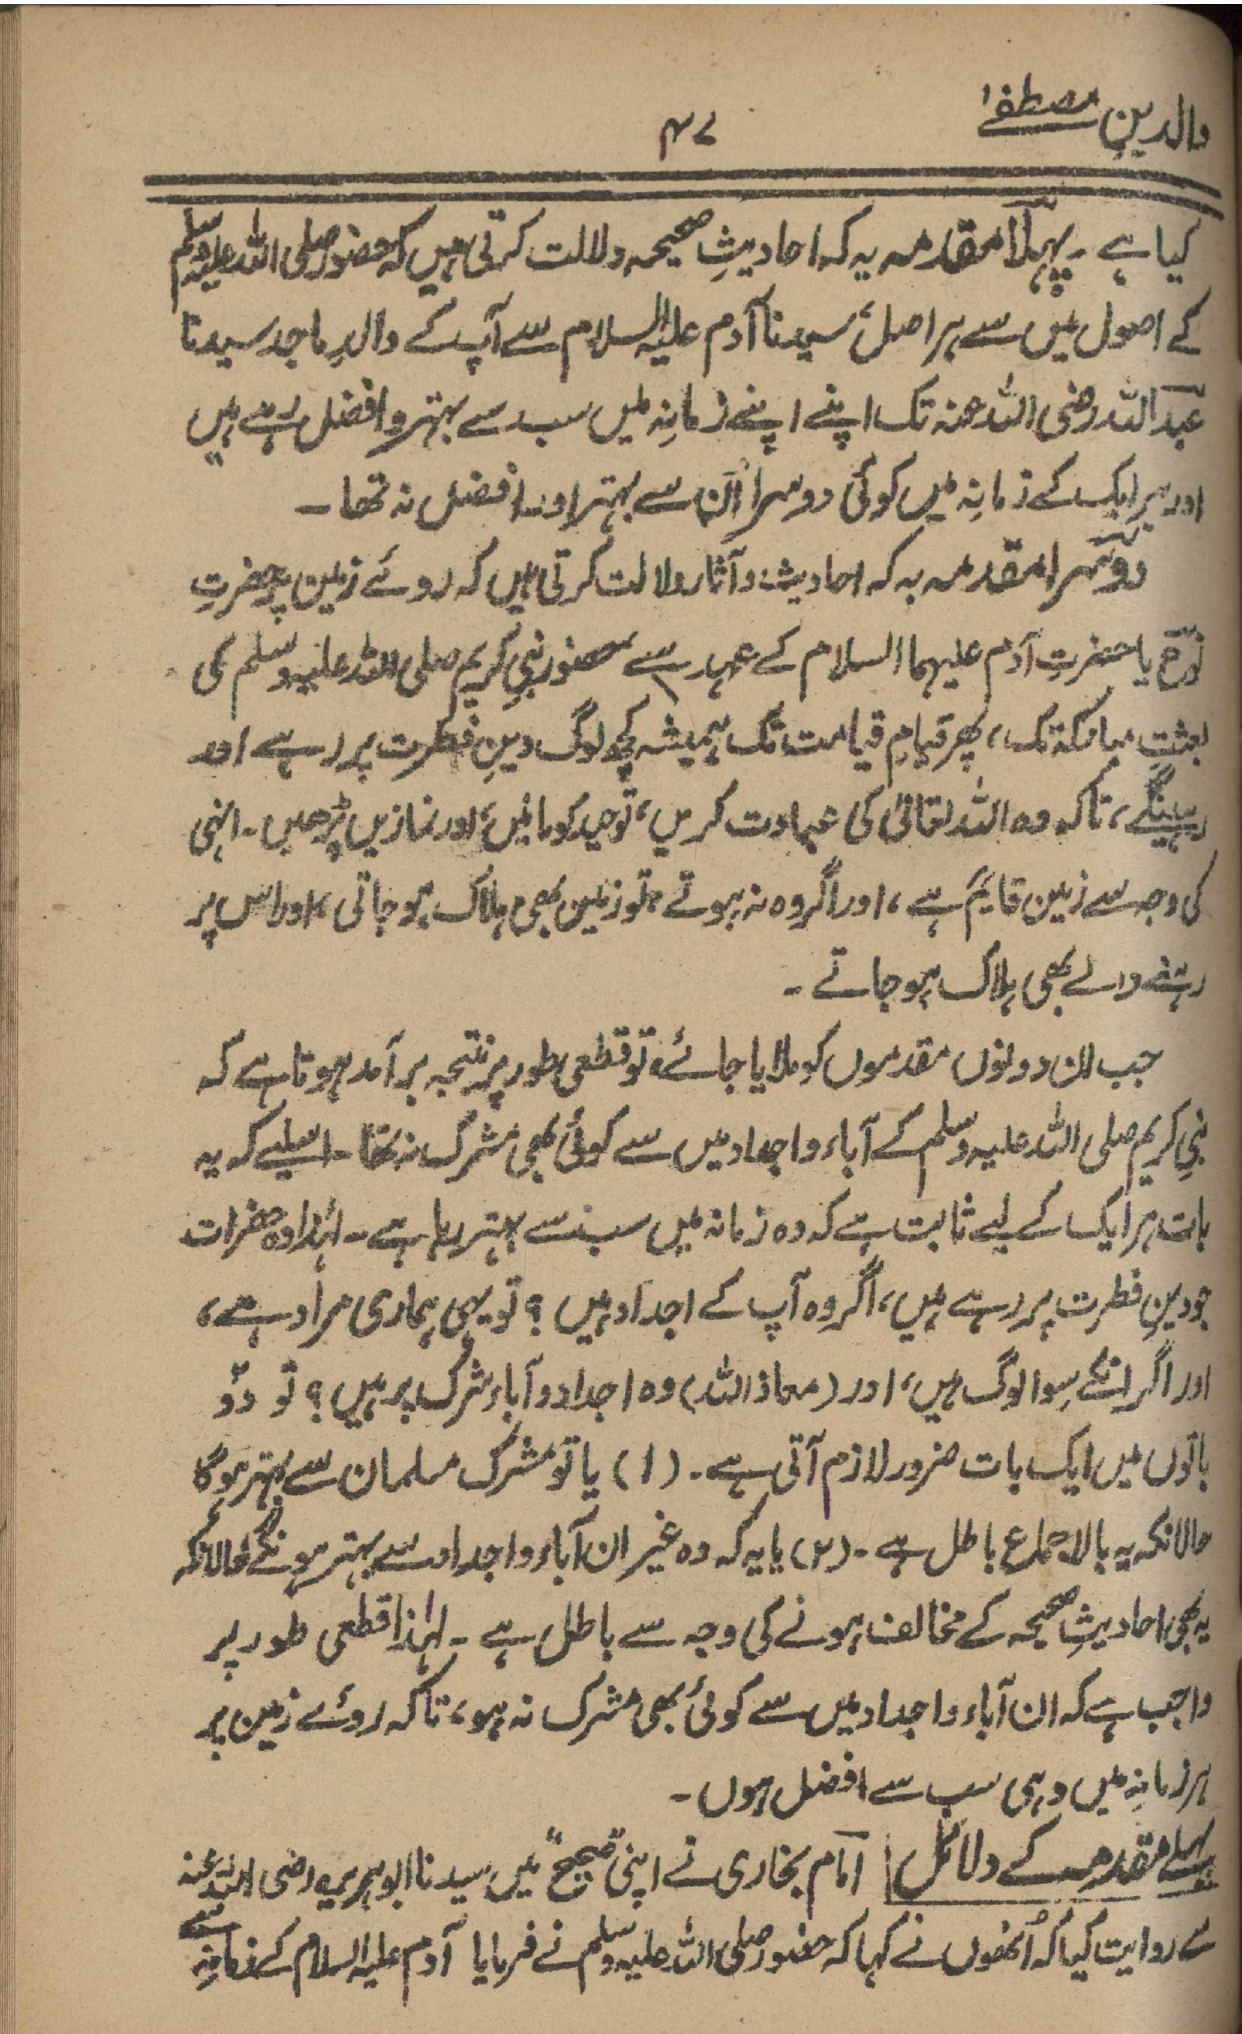 والدینِ مصطفےٰ
۴۷
کیا ہے ۔ پہلا مقدمہ یہ کہ احادیثِ صحیحہ دلالت کرتی ہیں کہ حضور صلی اللہ علیہ وسلم
کے اصول میں سے ہر اصل، سیدنا آدم علیہ السلام سے آپ کے والدِ ماجد سیدنا
عبداللہ رضی اللہ عنہ تک اپنے اپنے زمانہ میں سب سے بہتر و افضل رہے ہیں
اور ہر ایک کے زمانہ میں کوئی دوسرا اُن سے بہتر اور افضل نہ تھا ۔
دوسرا مقدمہ یہ کہ احادیث و آثار دلالت کرتی ہیں کہ روئے زمین پر حضرتِ
نوح یا حضرتِ آدم علیہما السلام کے عہد سے حضور نبیِ کریم صلی اللہ علیہ وسلم کی
بعثتِ مبارکہ تک، پھر قیامِ قیامت تک ہمیشہ کچھ لوگ دینِ فطرت پر رہے اور
رہینگے، تاکہ وہ اللہ تعالیٰ کی عبادت کریں، توحید کو مانیں، اور نمازیں پڑھیں ۔ انہی
کی وجہ سے زمین قایم ہے، اور اگر وہ نہ ہوتے، تو زمین بھی ہلاک ہو جاتی، اور اس پر
رہنے والے بھی ہلاک ہو جاتے ۔
جب ان دونوں مقدموں کو ملایا جائے، تو قطعی طور پر نتیجہ برآمد ہوتا ہے کہ
نبیِ کریم صلی اللہ علیہ وسلم کے آباء و اجداد میں سے کوئی بھی مشرک نہ تھا ۔ اسلیے کہ یہ
بات ہر ایک کے لیے ثابت ہے کہ وہ زمانہ میں سب سے بہتر رہا ہے ۔ لہٰذا وہ حضرات
جو دینِ فطرت پر رہے ہیں، اگر وہ آپ کے اجداد ہیں ؟ تو یہی ہماری مراد ہے،
اور اگر انکے سوا لوگ ہیں، اور (معاذ اللہ) وہ اجداد و آباء شرک پر ہیں ؟ تو دو
باتوں میں ایک بات ضرور لازم آتی ہے ۔ (۱) یا تو مشرک مسلمان سے بہتر ہوگا
حالانکہ یہ بالاجماع باطل ہے ۔ (۲) یا یہ کہ وہ غیر ان آباء و اجداد سے بہتر ہونگے حالانکہ
یہ بھی احادیثِ صحیحہ کے مخالف ہونے کی وجہ سے باطل ہے ۔ لہٰذا قطعی طور پر
واجب ہے کہ ان آباء و اجداد میں سے کوئی بھی مشرک نہ ہو، تاکہ روئے زمین پر
ہر زمانہ میں وہی سب سے افضل ہوں ۔
پہلے مقدمہ کے دلائل امام بخاری نے اپنی "صحیح" میں سیدنا ابو ہریرہ رضی اللہ عنہ
سے روایت کیا کہ اُنھوں نے کہا کہ حضور صلی اللہ علیہ وسلم نے فرمایا آدم علیہ السلام کے زمانہ سے